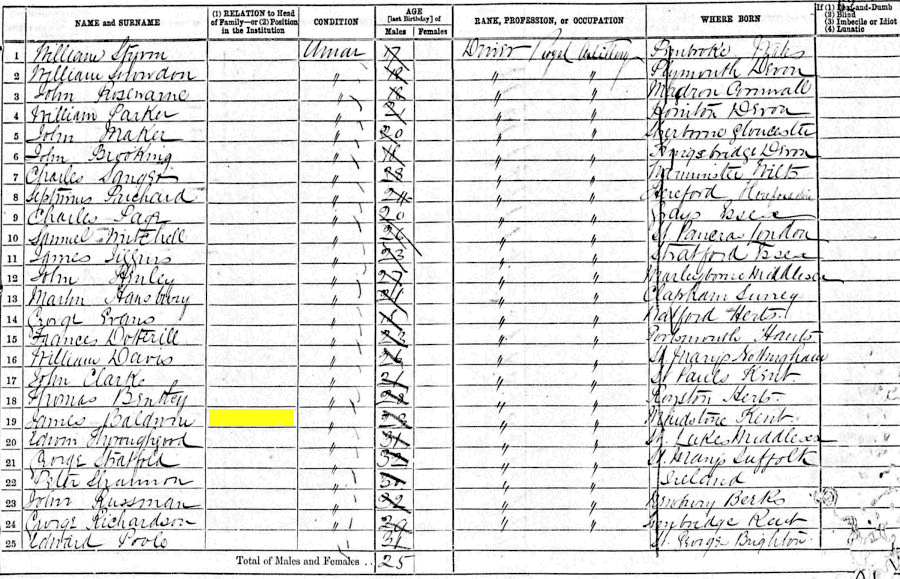 NAME and SURNAME (1) RELATION to Head of Family—or (2) Position in the Institution CONDITION AGE [last Birthday] of Males Females RANK, PROFESSION, or OCCUPATION WHERE BORN If (1) Deaf-and-Dumb (2) Blind (3) Imbecile or Idiot (4) Lunatic
1 William Unmar Driver Royal Artillery Pembroke Wales
2 William Slowdon " " " Plymouth Devon
3 John Rosewarne " " " Madron Cornwall
4 William Parker " " " Honiton Devon
5 John Maker " 20 " " Sherborne Gloucester
6 John Brooking " " " Kingsbridge Devon
7 Charles Sanger " 28 " " Warminster Wilts
8 Septimus " 24 " " Hereford
9 Charles Page " 20 " " Grays Essex
10 Samuel Mitchell " " " St Pancras London
11 James " " " Stratford Essex
12 John Henley " " " Marlebone Middlesex
13 Martin Hansbury " " " Clapham Surrey
14 George Evans " " " Watford Herts.
15 Frances Dotterill " " " Portsmouth Hants
16 William Davis " " " St Marys Nottingham
17 John Clarke " " " St Pauls Kent.
18 Thomas " " " Royston Herts.
19 James Baldwin " " " Maidstone Kent
20 Edwin Thoroughgood " 31 " " St. Lukes Middlesex
21 George Stratford " 32 " " St. Marys Suffolk
22 Peter Shannon " 31 " " Ireland
23 John Russman " 32 " " Newbury Berks
24 George Richardson " 29 " " Tonbridge Kent
25 Edward Poole 31 St. George Brighton
Total of Males and Females .. 25